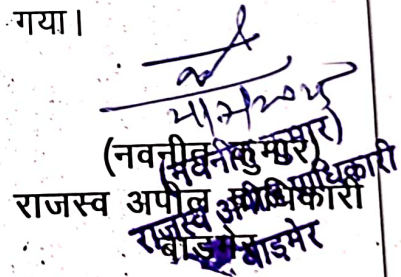 गया।
(नवनीत कुमार)
राजस्व अपील प्राधिकारी
बाड़मेर
(नवनीत कुमार)
राजस्व अपील प्राधिकारी
बाड़मेर